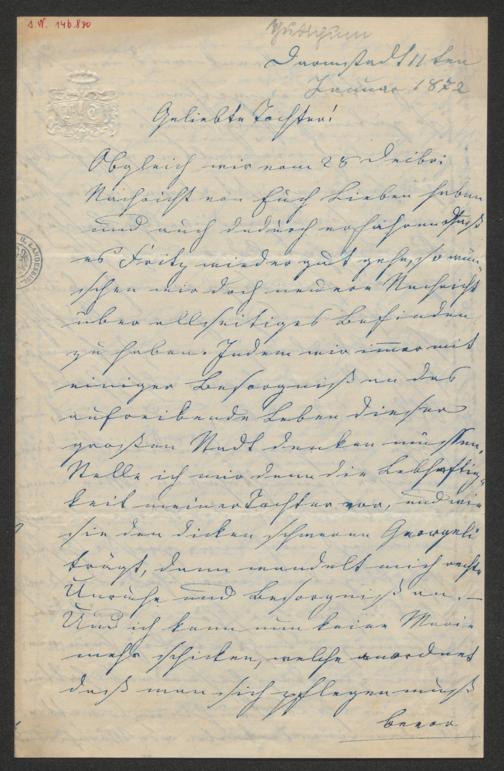 s. N. 146.890
Darmstadt 11ten
Januar 1872
Geliebte Tochter!
Obgleich wir vom 28 Dcbr:
Nachricht von Euch Lieben haben
und auch dadurch erfahren, daß
es Fritz wieder gut gehe, so wün-
schen wir doch neuere Nachricht
über allseitiges Befinden
zu haben. Indem wir immer mit
einiger Besorgniß an das
aufreibende Leben dieser
großen Stadt denken müssen.
Stelle ich mir dann die Lebhaftig-
keit meiner Tochter vor, und wie
sie den dicken schweren Georgeli
trägt, dann wandelt mich rechte
Unruhe und Besorgniß an. –
Und ich kann nun keine Marie
mehr schicken, welche anordnet
daß man sich pflegen muß
bevor